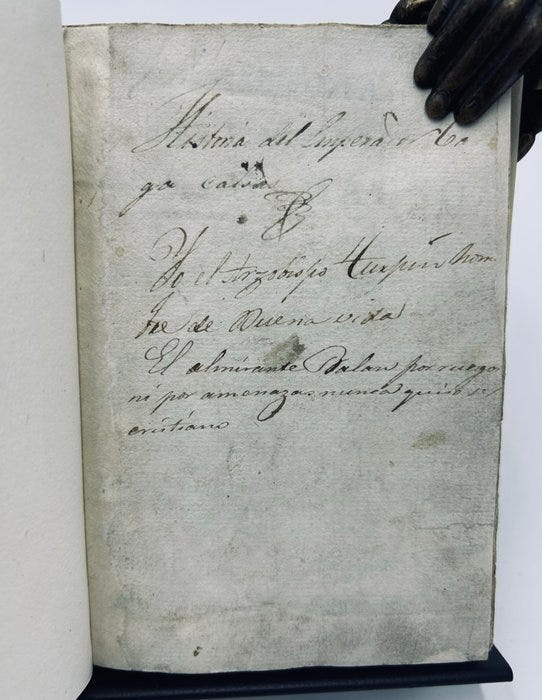 Historia del Emperador Ca
Yo el Arzobispo Turpin hom
bre de Buena vida
El almirante Balan por ruego
ni por amenazas nunca quiso ser
cristiano